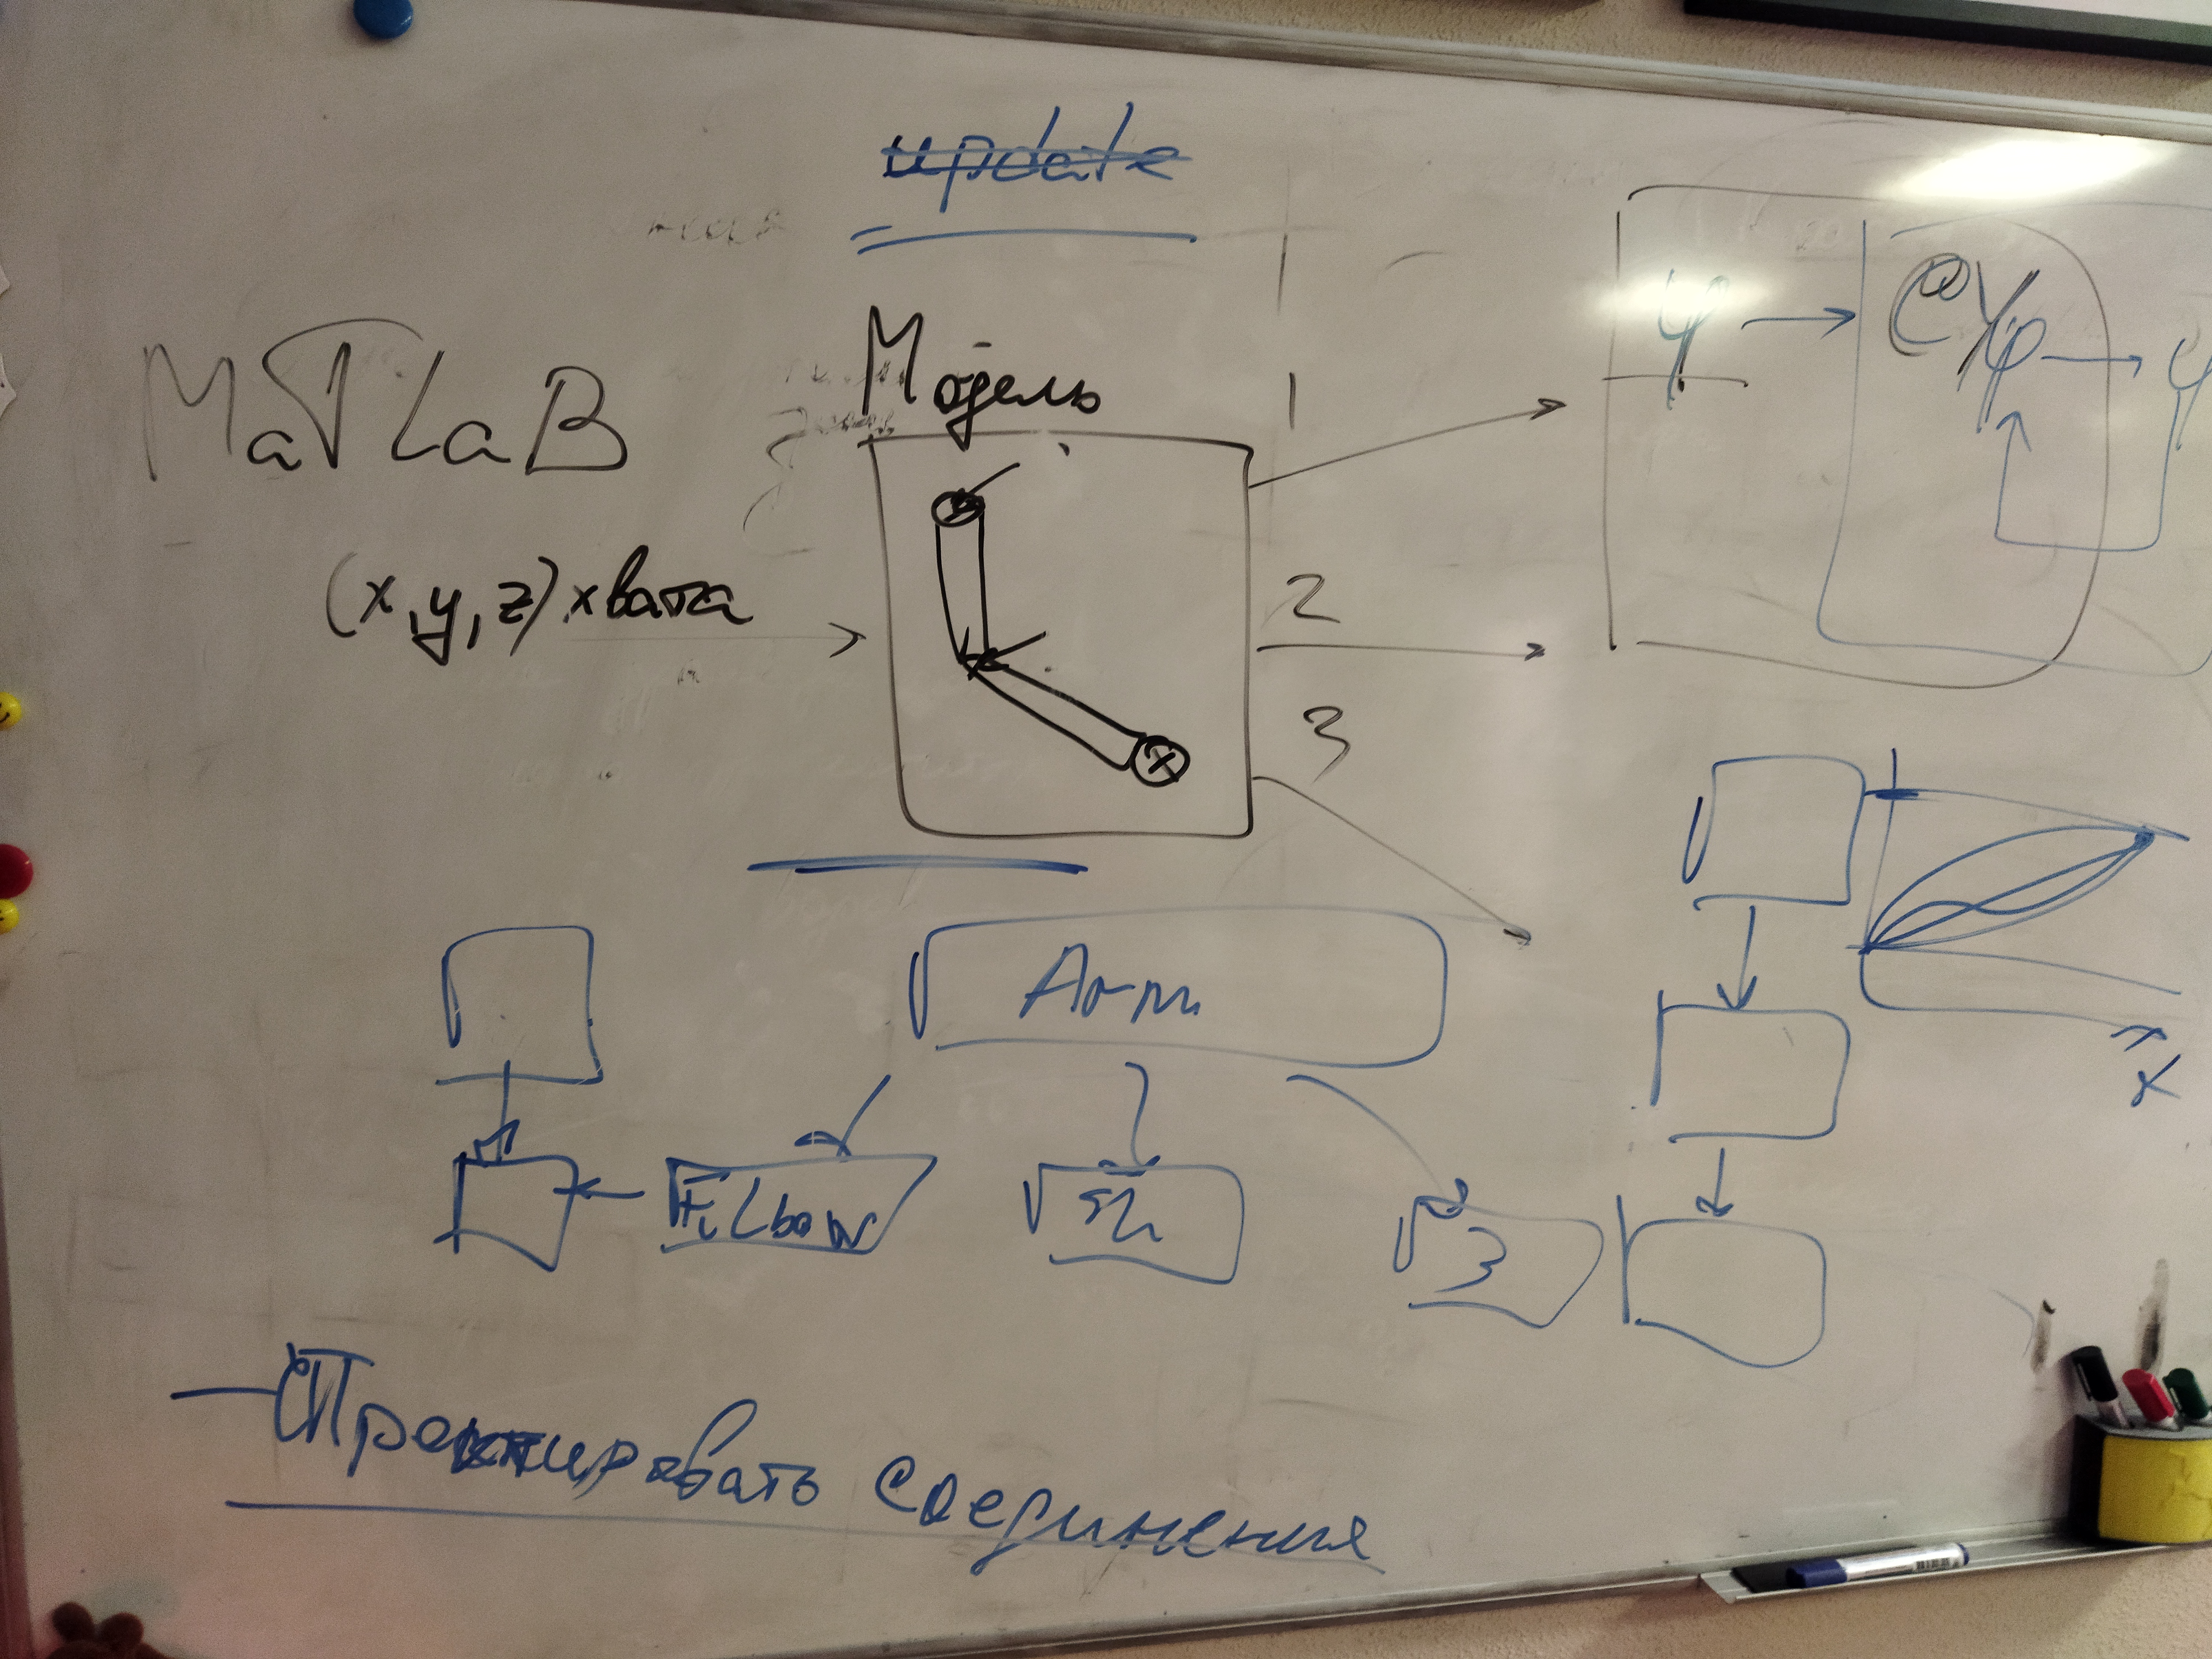 update
MaTLaB
Модель
(x, y, z) хвата
1
2
3
φ
φ
Arm
Elbow
3
x
Проектировать соединения